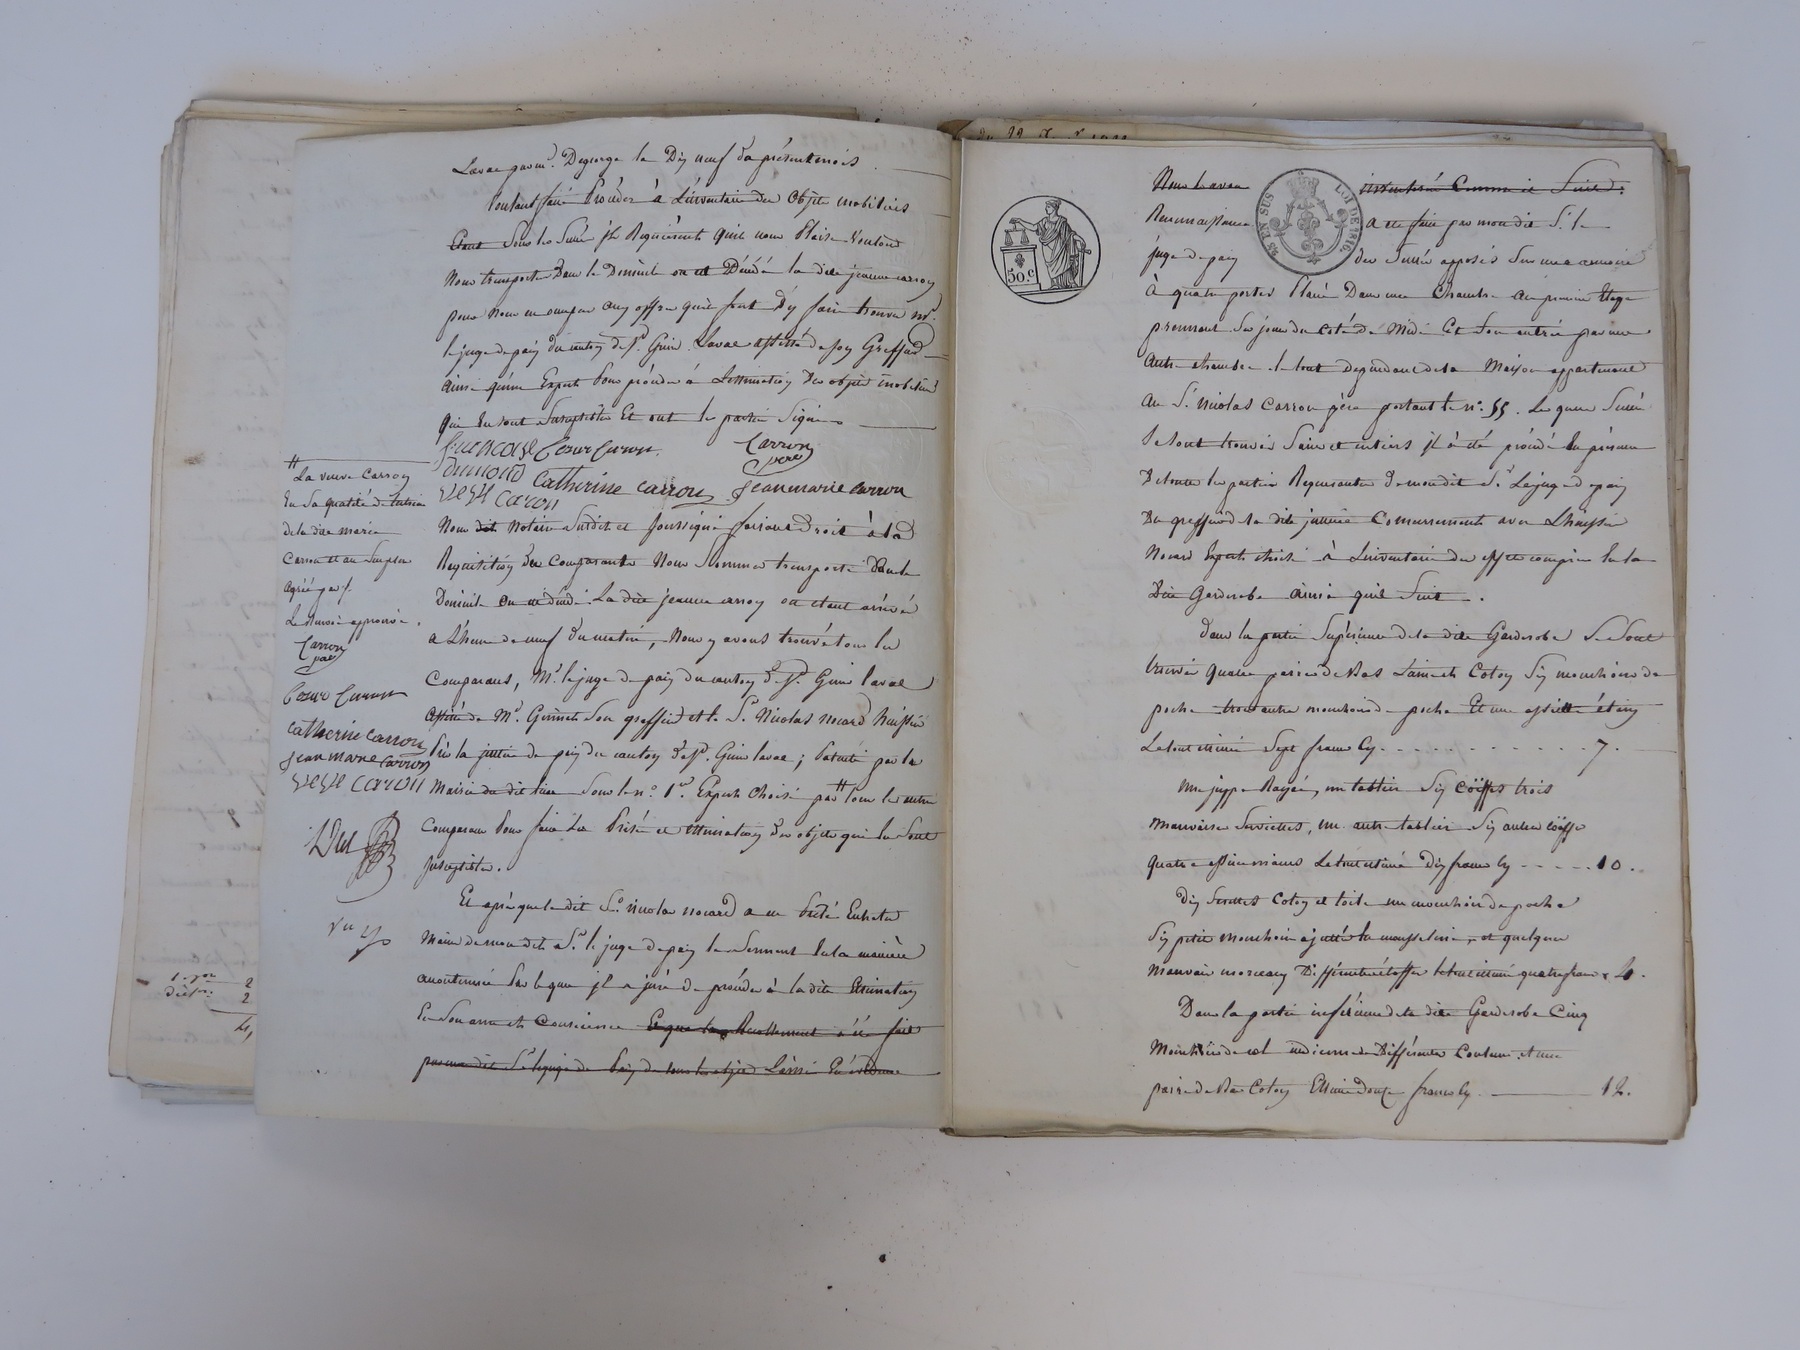 Laval par M.r Degeorge le Dix neuf du présent mois
voulant faire Procéder à L'inventaire des objets mobiliers
Sous les Scellés ils Requièrent qu'il nous Plaise vouloir
Nous transporter Dans le Domicile où est Décédé la dite jeanne carron
pour nous en occuper aux offres qu'ils font d'y faire trouver M.r
le juge de paix du canton de S.t Genis Laval assisté de son Greffier
ainsi qu'un Expert Pour procéder à L'estimation Des objets mobiliers
qui en sont Susceptibles Et ont les parties Signé
françoise Coeur Carron. Carron père
dumond Catherine carron jean marie carron
veuve caron
Nous dit Notaire Susdit et soussigné faisant Droit à la
Requisition des Comparants Nous Sommes transporté dans le
Domicile où est décédé La dite jeanne carron où étant arrivé
a L'heure de neuf du matin, Nous y avons trouvé tous les
Comparans, M.r le juge de paix du canton de S.t Genis laval
assisté de M.r son greffier et le S.r Nicolas nocard huissier
Près la justice de paix du canton de S.t Genis laval; Patenté par la
Mairie du dit lieu Sous le n.o 1.er Expert Choisi par # tous les autres
Comparans Pour faire Les Prisée et estimation des objets qui en Sont
susceptibles.
Et après que le dit S.r Nicolas nocard a eu Prêté Entre les
Mains de mon dit S.r le juge de paix le Serment en la manière
accoutumée Par lequel il a juré de procéder à la dite Estimation
En Son ame et Conscience Et que
# La veuve Carron
En Sa qualité de tutrice
de la dite marie
Carron
Carron père
Coeur Carron
catherine carron
jean marie carron
veuve caron
Vu
2
2
4,
50.c
25 EN SUS LOI DE 1816.
Nous L'avons inventorié Comme il Suit:
Reconnaissance a été faite par mon dit S.r le
juge de paix des Scellés apposés Sur une armoire
à quatre portes Placée Dans une Chambre au premier Etage
prennant Ses jours du coté de Midi Et Son entrée par une
autre chambre le tout dépendant de la Maison appartenant
au S.r Nicolas Carron père portant le n.o 55. Lesquels Scellés
Se sont trouvés Sains et entiers il à été procédé En présence
De toutes les parties Requérantes De mon dit S.r Le juge de paix
Du greffier de la dite justice Concurremment avec L'huissier
Nocard Expert choisi à L'inventaire des effets compris En la
Dite Garderobe ainsi qu'il Suit.
Dans la partie Supérieure de la dite Garderobe Se Sont
trouvés Quatre paires de Bas Laine et Coton Six mouchoirs de
poche trois autres mouchoirs de poche Et une assiette étain
Le tout estimé Sept francs Cy. . . . . . . . . . . . 7.
Une juppe Rayée, un tablier Six Coëffes trois
mauvaises Serviettes, un autre tablier Six autres coëffes
quatre Le tout estimé Dix francs Cy - - - - - . 10.
Dix Coton et toile un mouchoir de poche
Six petits mouchoirs mousseline, et quelques
mauvais morceaux Différentes étoffes le tout estimé quatre francs 4.
Dans la partie inférieure de la dite Garderobe Cinq
Mouchoirs de col indienne de Différentes Couleurs Et une
paire de Bas Coton Estimé Douze francs Cy. 12.